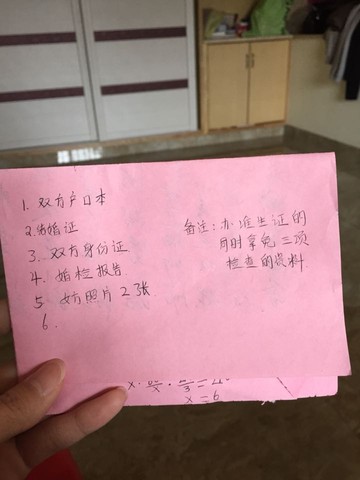 1. 双方户口本
2. 结婚证
3. 双方身份证
4. 婚检报告
5 女方照片 2张
6.
备注: 办准生证的
同时拿免三项
检查的资料
x = 6